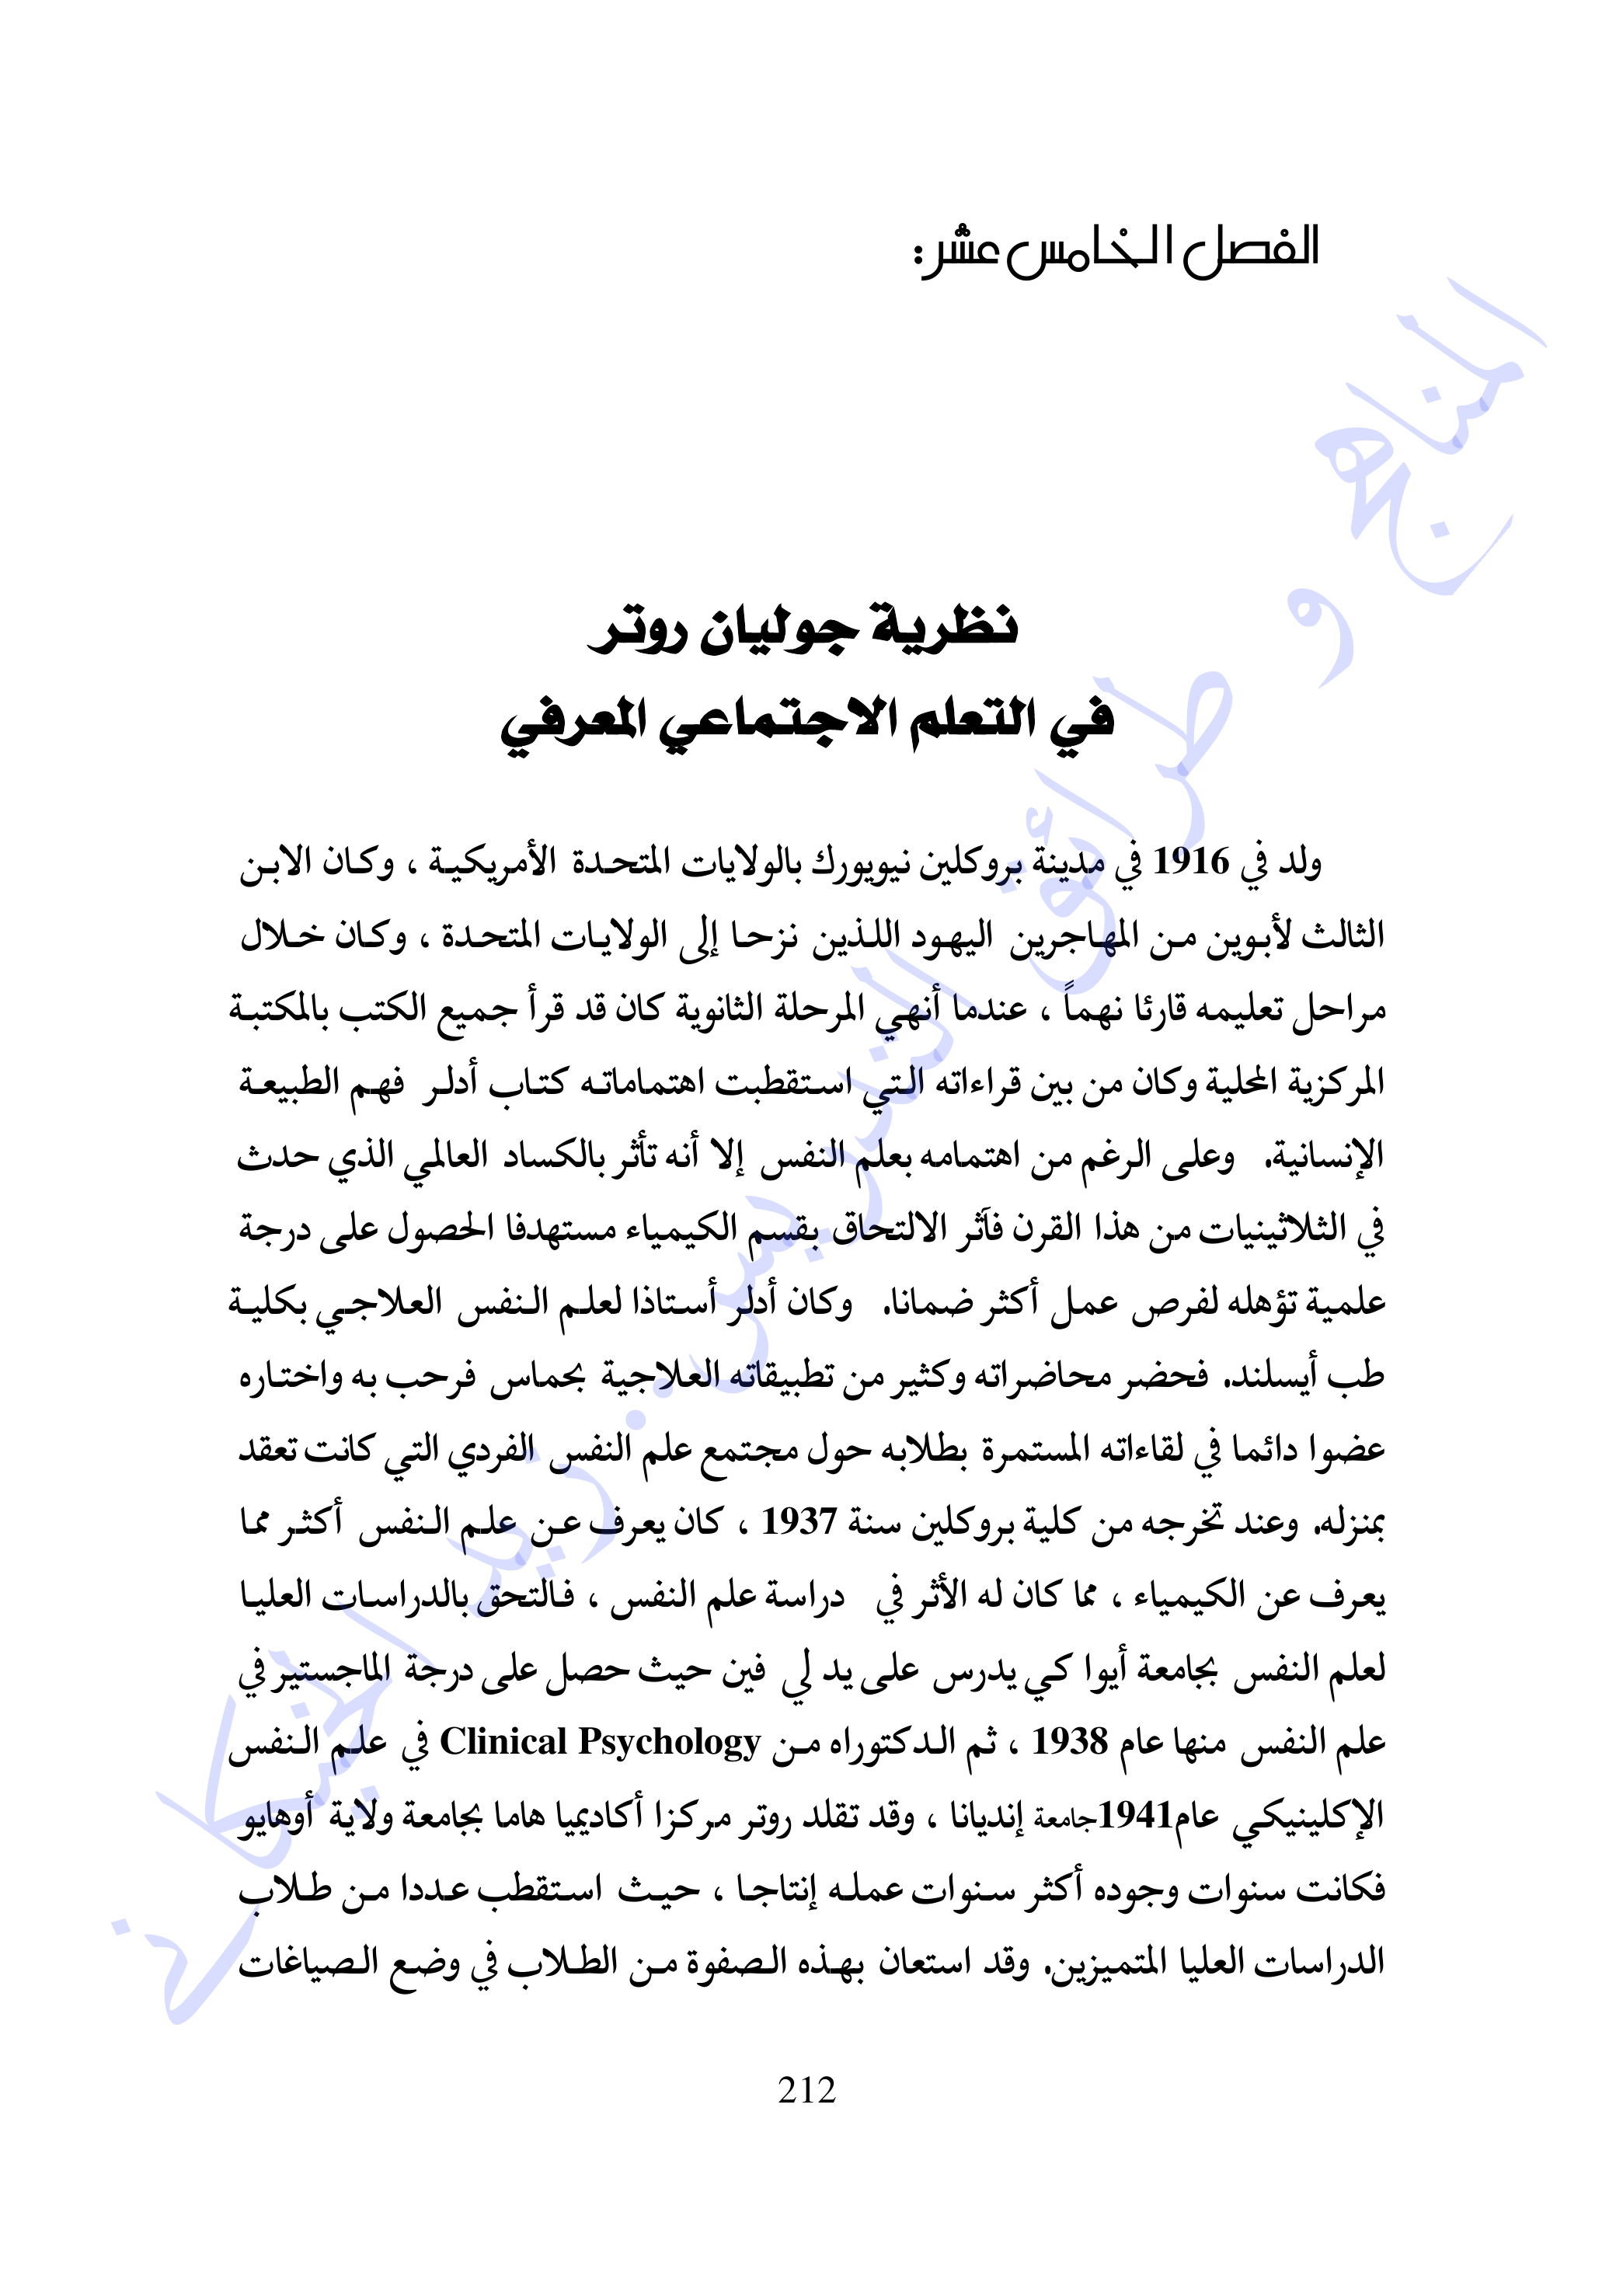 الفصل الخامس عشر:
نظرية جوليان روتر
في التعلم الاجتماعي المعرفي
ولد في 1916 في مدينة بروكلين نيويورك بالولايات المتحدة الأمريكية ، وكان الابن
الثالث لأبوين من المهاجرين اليهود اللذين نزحا إلى الولايات المتحدة ، وكان خلال
مراحل تعليمه قارئا نهماً ، عندما أنهي المرحلة الثانوية كان قد قرأ جميع الكتب بالمكتبة
المركزية المحلية وكان من بين قراءاته التي استقطبت اهتماماته كتاب أدلر فهم الطبيعة
الإنسانية. وعلى الرغم من اهتمامه بعلم النفس إلا أنه تأثر بالكساد العالمي الذي حدث
في الثلاثينيات من هذا القرن فآثر الالتحاق بقسم الكيمياء مستهدفا الحصول على درجة
علمية تؤهله لفرص عمل أكثر ضمانا. وكان أدلر أستاذا لعلم النفس العلاجي بكلية
طب أيسلند. فحضر محاضراته وكثير من تطبيقاته العلاجية بحماس فرحب به واختاره
عضوا دائما في لقاءاته المستمرة بطلابه حول مجتمع علم النفس الفردي التي كانت تعقد
بمنزله. وعند تخرجه من كلية بروكلين سنة 1937 ، كان يعرف عن علم النفس أكثر مما
يعرف عن الكيمياء ، مما كان له الأثر في دراسة علم النفس ، فالتحق بالدراسات العليا
لعلم النفس بجامعة أيوا كي يدرس على يد لي فين حيث حصل على درجة الماجستير في
علم النفس منها عام 1938 ، ثم الدكتوراه من Clinical Psychology في علم النفس
الإكلينيكي عام1941جامعة إنديانا ، وقد تقلد روتر مركزا أكاديميا هاما بجامعة ولاية أوهايو
فكانت سنوات وجوده أكثر سنوات عمله إنتاجا ، حيث استقطب عددا من طلاب
الدراسات العليا المتميزين. وقد استعان بهذه الصفوة من الطلاب في وضع الصياغات
212